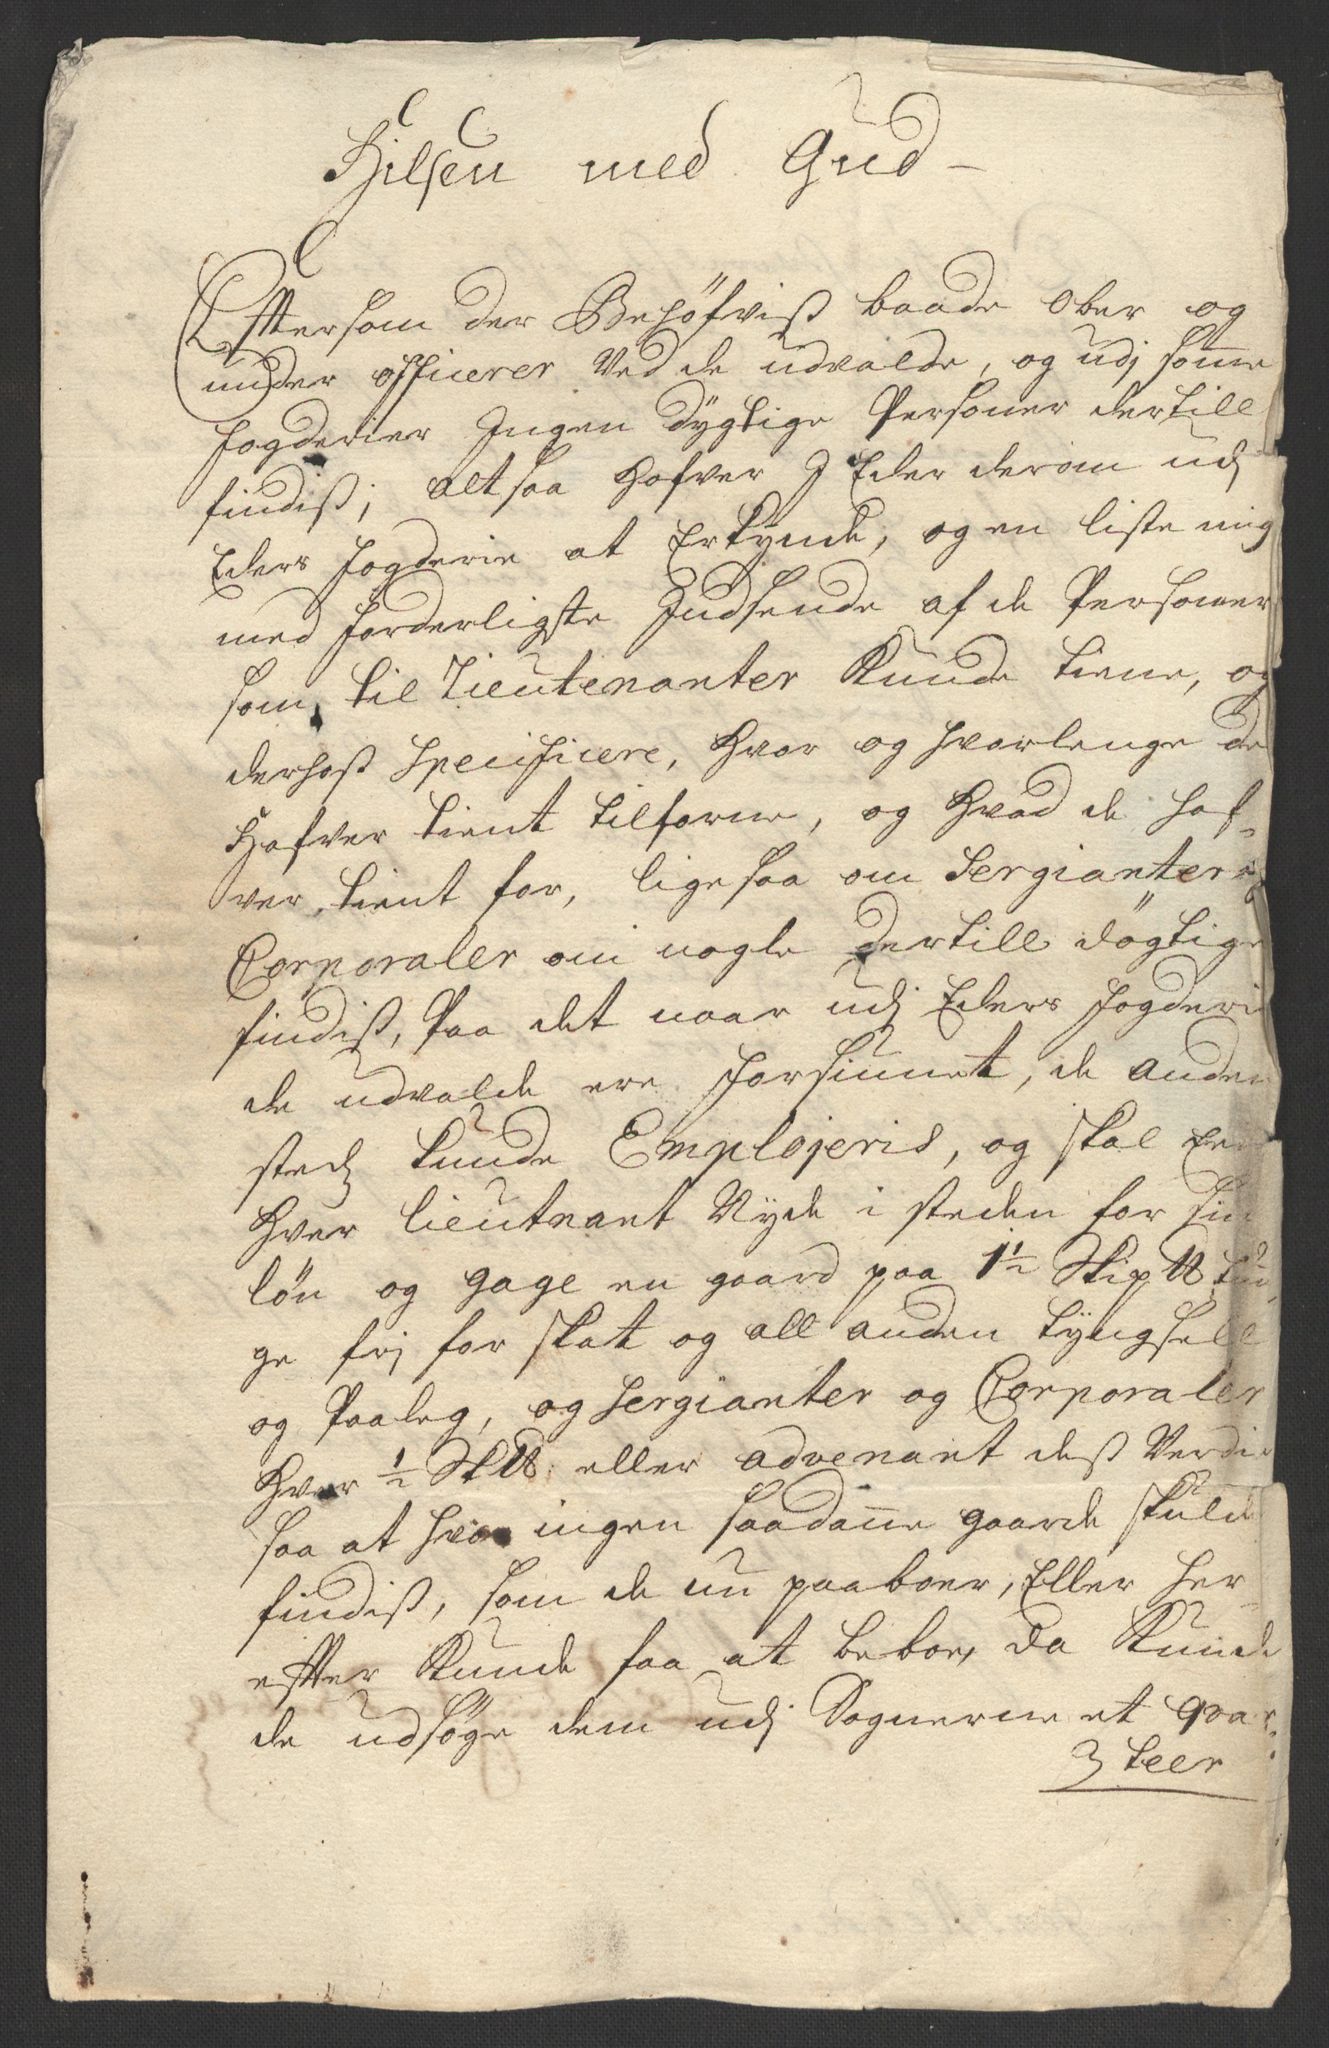 Hilsen med Gud -
Effter som der Behöfviß baade Ober og
under officerer Ved de udvalde, og udj somme
fogderier Ingen dÿgtige Personer dertill
findiß; alt saa hafver J Eder derom udj
Eders fogderie at Erkÿnde, og en liste mig
med forderligste Indsende af de Personer
som til Lieutenanter kunde tiene, og
derhoß Specificere, hvor og hvorlenge de
hafver tient tilforne, og hvad de haf-
ver tient for, lige saa om Sergianter og
Corporaler om nogle dertill dögtige
findiß, Paa det naar udj Eders fogderi
de udvalde ere forsiunet, de anden
steds kunde Emplojeris, og skal En
hver lieutnant Nÿde i steden for sin
løn og gage en gaard paa 1½ Skip ℔ tÿn-
ge frj for skat og all anden tÿngsell
og Paaleg, og Sergianter og Corporaler
hver ½ Sk℔ eller advenant deß Verdie
saa at hvor ingen saadanne gaarde skulde
findiß, som de nu paaboer, Eller her-
effter kunde faa at beboe, da kunde
de udsöge dem udj Sognerne et qvar-
teer